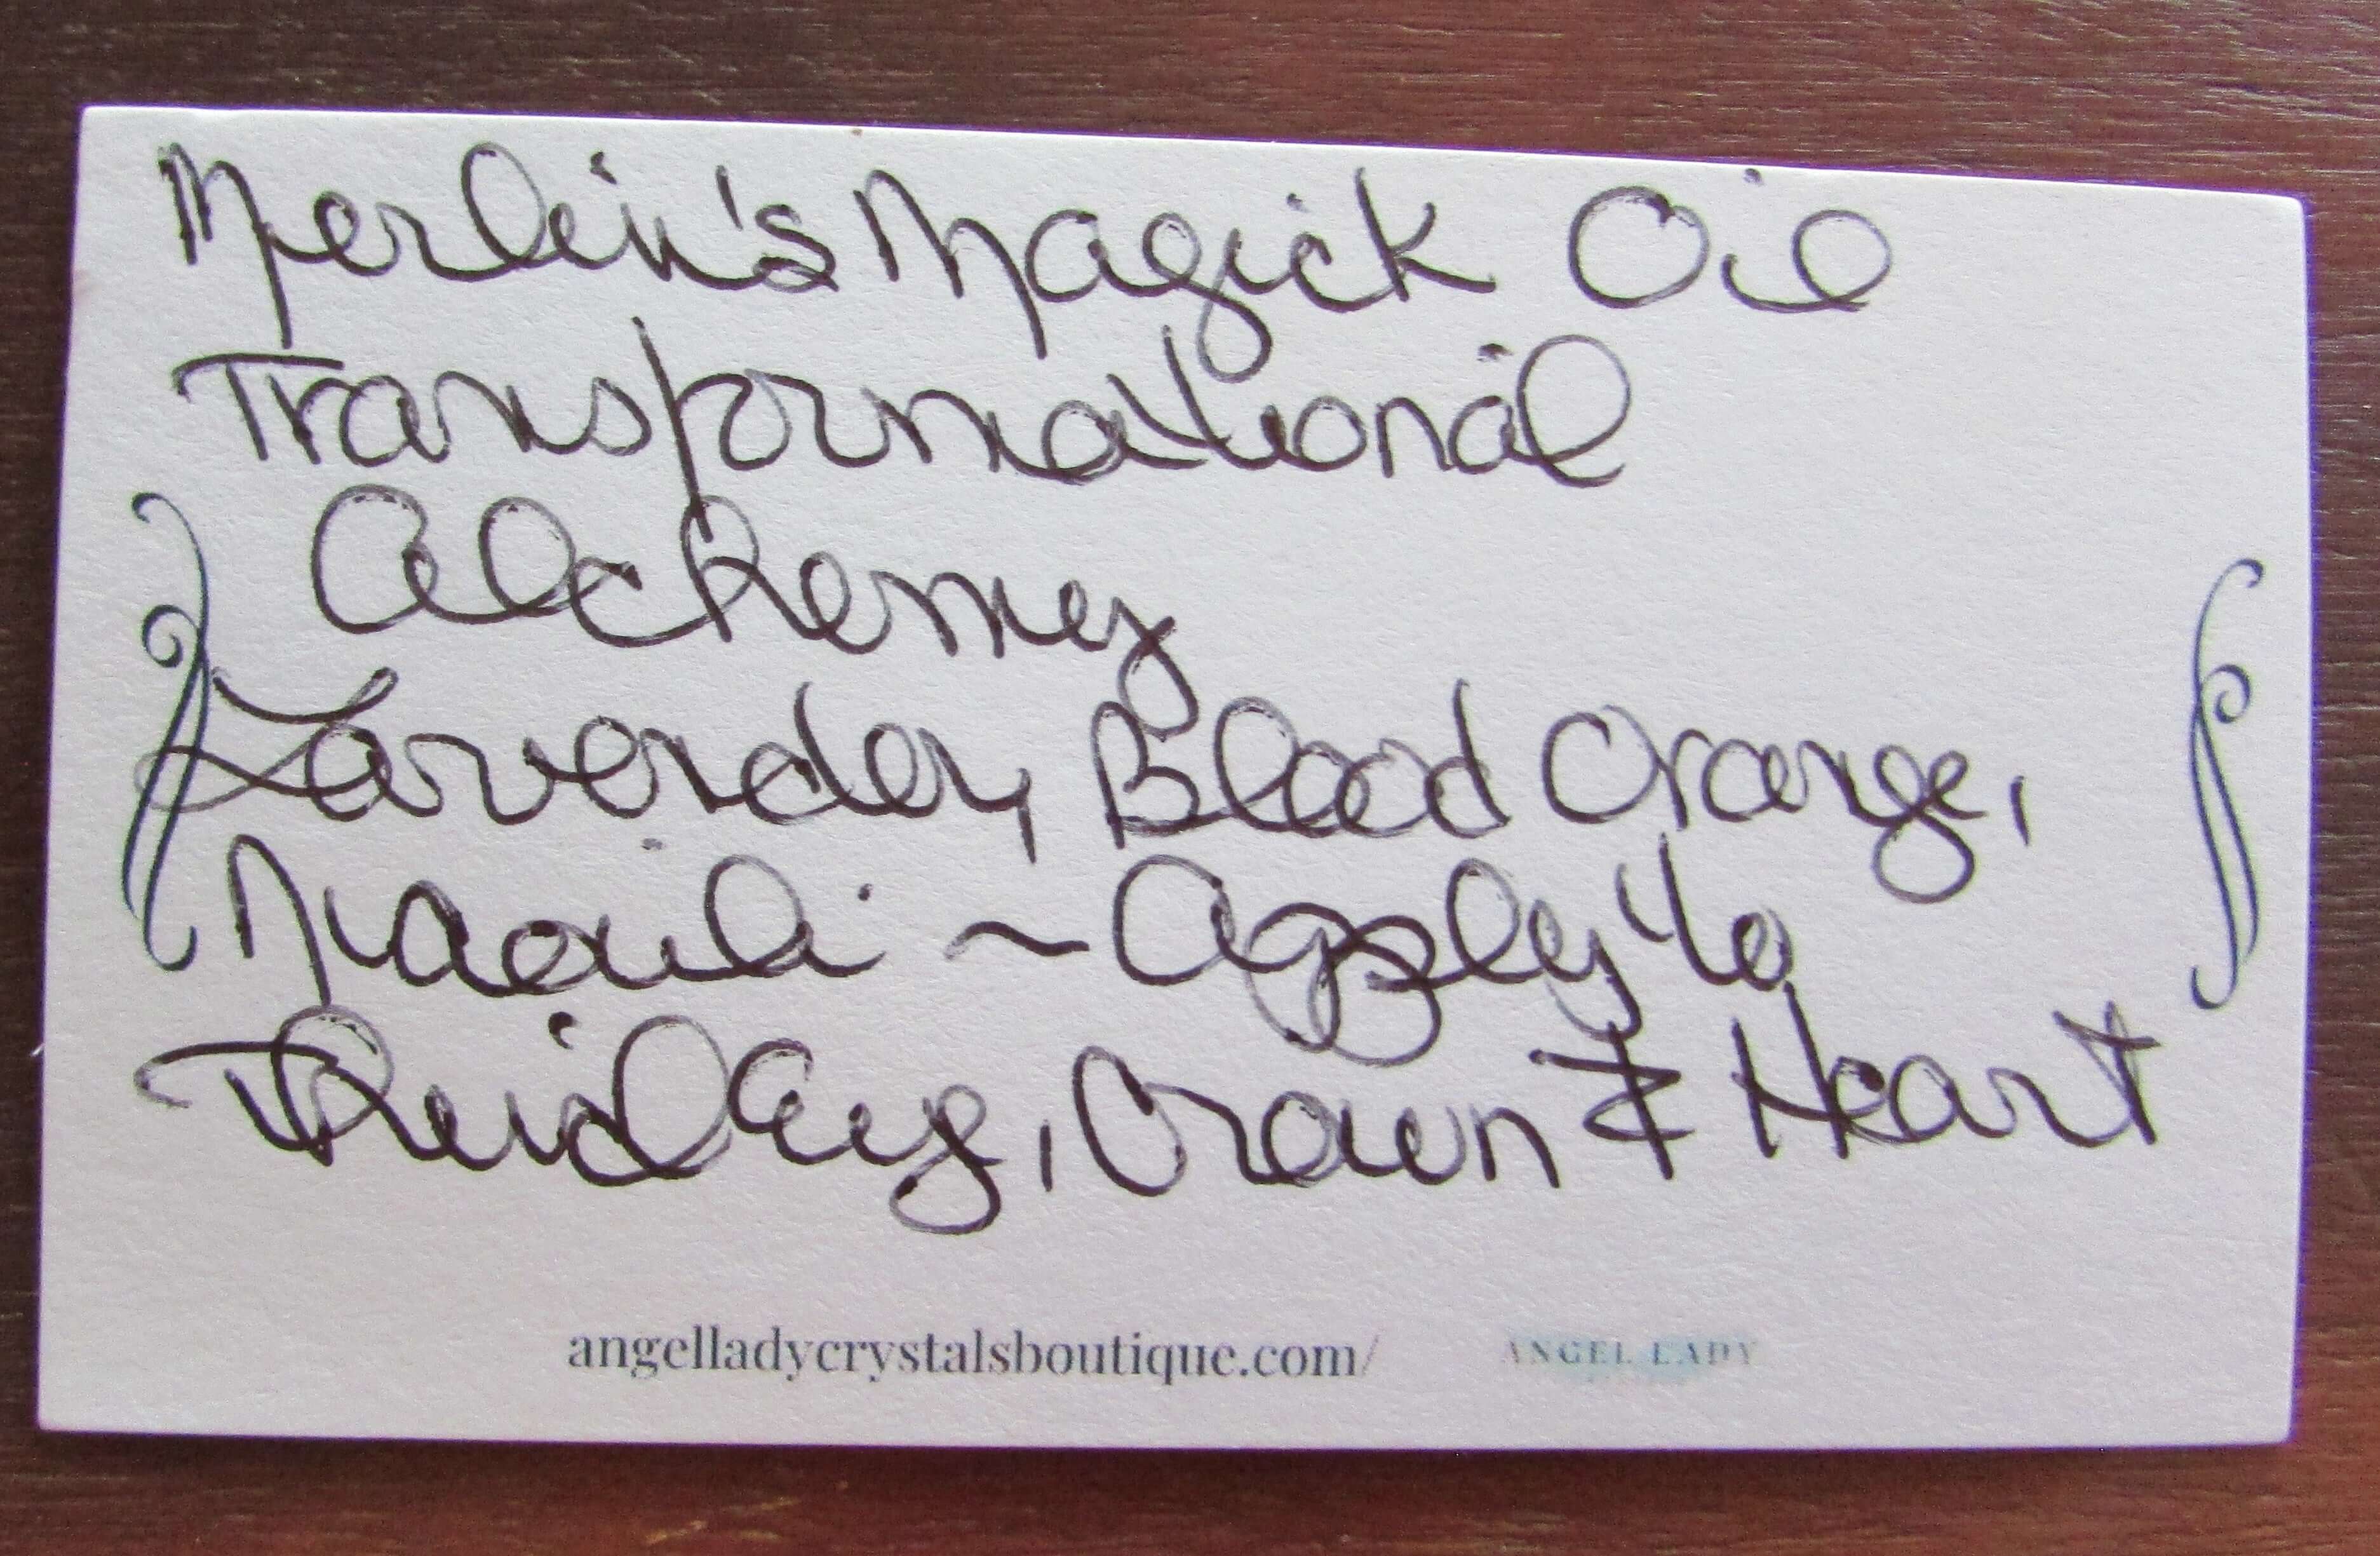 Merlin's Magick Oil
Transformational
Alchemy
Lavender, Blood Orange,
Niaouli ~ Apply to
Third Eye, Crown & Heart
angelladycrystalsboutique.com/ ANGEL LADY